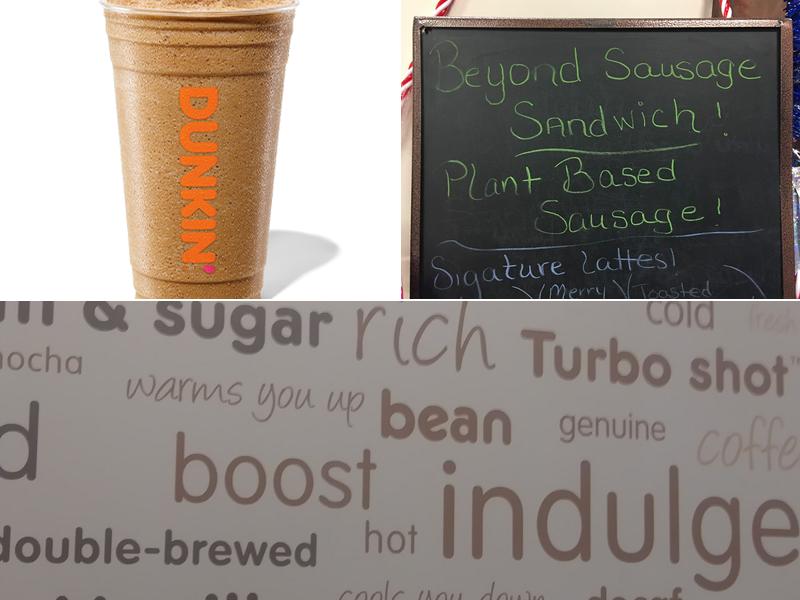 DUNKIN'
Beyond Sausage
Sandwich!
Plant Based
Sausage!
Sigature Lattes!
(Merry) (Toasted
& sugar rich cold fresh
mocha Turbo shot™
warms you up bean genuine coffe
d boost indulge
double-brewed hot
cools you down decaf